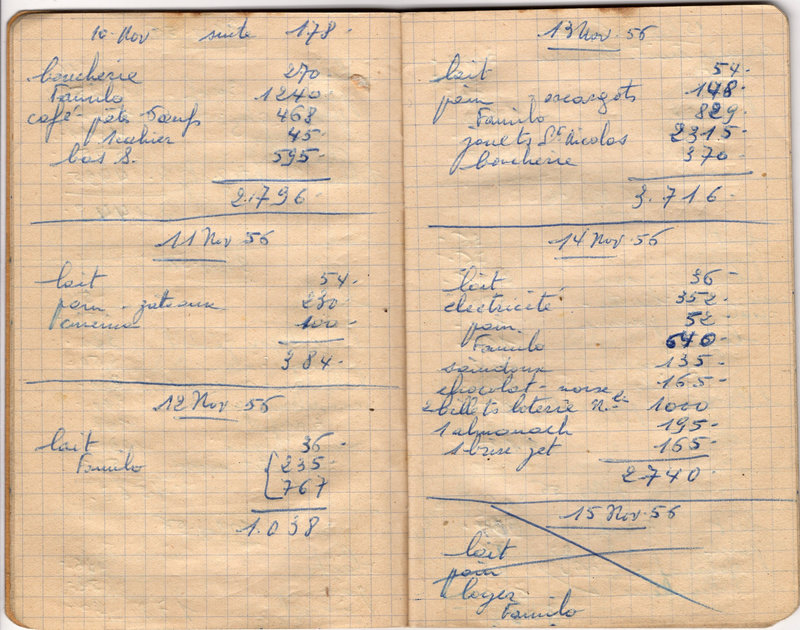 10 Nov suite 178 -
boucherie 270
Familo 1240 -
café - pâtes - oeufs 468
1 cahier 45 -
bas S. 595 -
2.796 -
11 Nov 56
lait 54 -
pain - gateaux 230
cinema 100 -
384 -
12 Nov 56
lait 36 -
Familo 235 -
767
1.038
13 Nov. 56
lait 54 -
pain escargots 148 -
Familo 829 -
jouets St Nicolas 2315 -
boucherie 370 -
3.716 -
14 Nov 56
lait 36 -
électricité 352 -
pain 52 -
Familo 640 -
saindoux 135 -
chocolat - noise 165 -
2 billets loterie N.le 1000
1 almanach 195 -
1 brise jet 165 -
2740 -
15 Nov 56
lait
pain
loyer
Familo